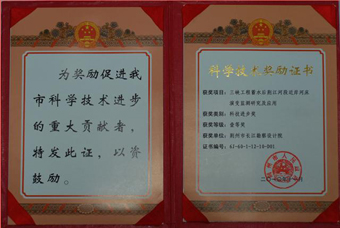 为奖励促进我
市科学技术进步
的重大贡献者，
特发此证，以资
鼓励。
科学技术奖励证书
获奖项目：三峡工程蓄水后荆江河段近岸河床
演变监测研究及应用
获奖类别：科技进步奖
获奖等级：壹等奖
获奖单位：荆州市长江勘察设计院
证书编号：